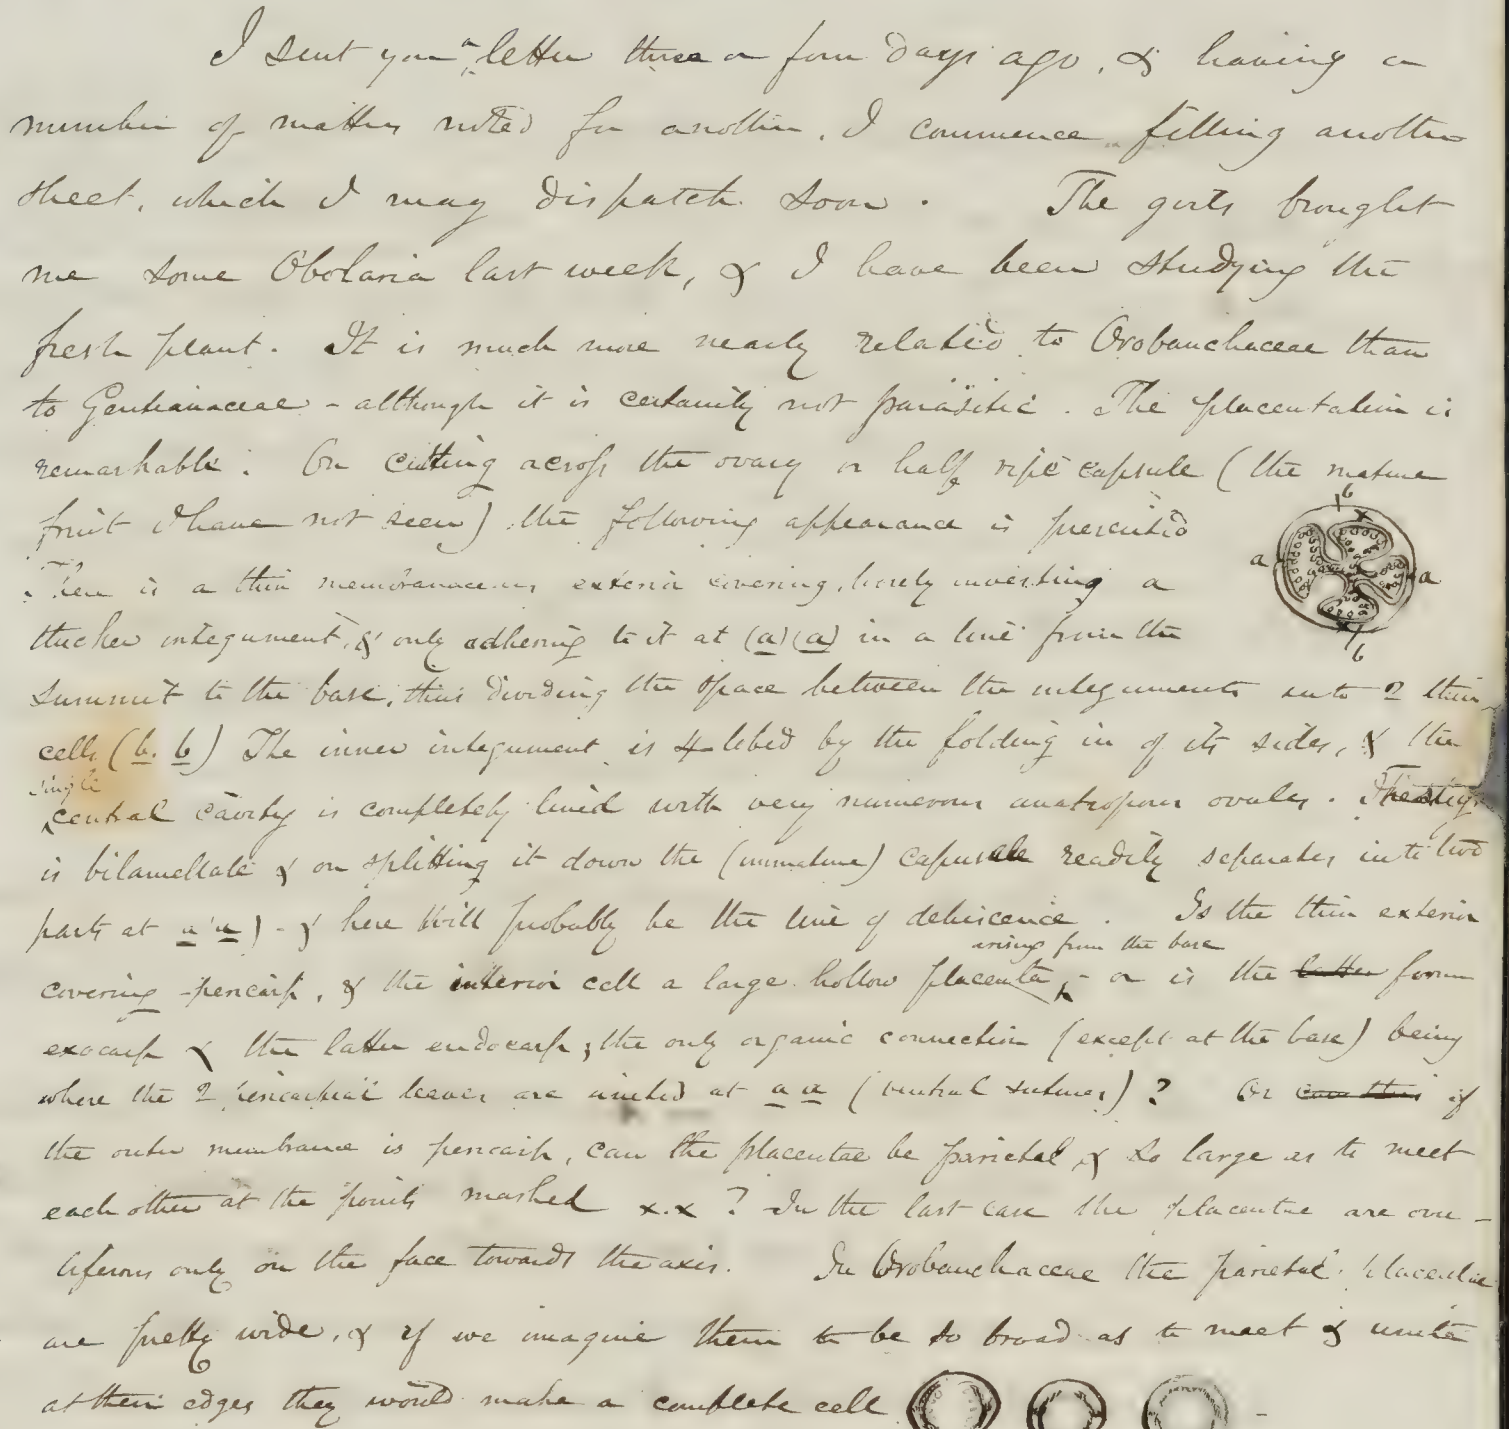 I sent you a letter three or four days ago, & having a
number of matters noted for another, I commence filling another
sheet, which I may dispatch soon. The girls brought
me some Obolaria last week, & I have been studying the
fresh plant. It is much more nearly related to Orobanchaceae than
to Gentianaceae - although it is certainly not parasitic. The placentation is
remarkable. On cutting across the ovary or half ripe capsule (the mature
fruit I have not seen) the following appearance is presented
b
a
a
b
There is a thin membranaceous exterior covering, loosely investing a
thicker integument, & only adhering to it at (a) (a) in a line from the
summit to the base, thus dividing the space between the integuments into 2 thin
cells (b. b) The inner integument is 4-lobed by the folding in of its sides, & the
single
central cavity is completely lined with very numerous anatropous ovules. The stig
is bilamellate & on splitting it down the (immature) capsule readily separates into two
parts at a a) - & here will probably be the line of dehiscence. Is the thin exterior
arising from the base
covering pericarp, & the interior cell a large hollow placenta, - or is the latter form
exocarp & the latter endocarp; the only organic connection (except at the base) being
where the 2 pericarpial leaves are united at a a (ventral sutures)? Or can this if
the outer membrane is pericarp, can the placentae be parietal, & so large as to meet
each other at the points marked x.x? In the last case the placentae are ovu-
liferous only on the face towards the axis. In Orobanchaceae the parietal placentae
are pretty wide, & if we imagine them to be so broad as to meet & unite
at their edges they would make a complete cell